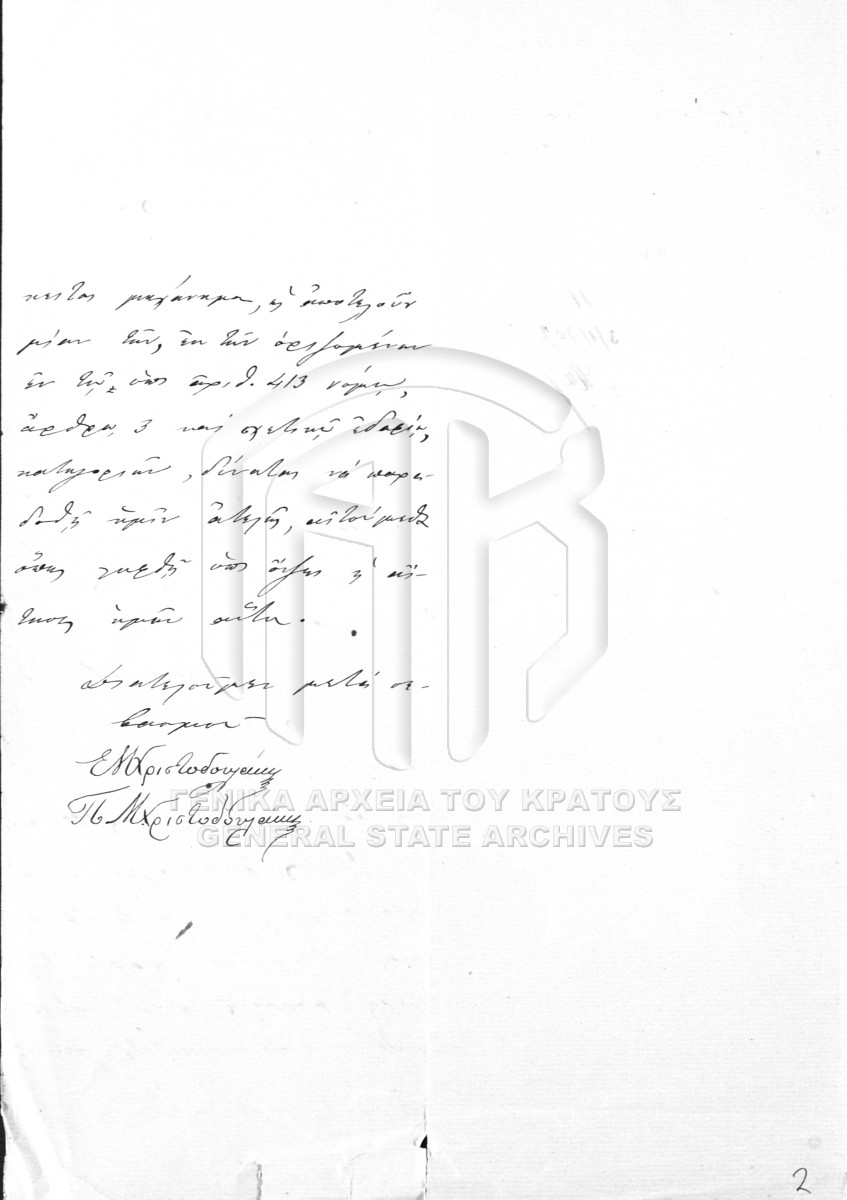 κειται μηχάνημα, ὡς ἀποτελοῦν
μίαν τῶν, ἐκ τῶν ὁριζομένων
ἐν τῷ ὑπ' ἀριθ. 413 νόμῳ,
ἄρθρῳ 3 καὶ σχετικῇ
κατηγοριῶν, δύναται νὰ παρα-
δοθῇ ἡμῖν ἀτελῶς, αἰτούμεθα
ὅπως ληφθῇ ὑπ' ὄψει ἡ αἴ-
τησις ἡμῶν αὕτη.
Διατελοῦμεν μετὰ σε-
βασμοῦ
Ε Μ Χριστοδουλάκης
Π. Μ. Χριστοδουλάκης
ΓΕΝΙΚΑ ΑΡΧΕΙΑ ΤΟΥ ΚΡΑΤΟΥΣ
GENERAL STATE ARCHIVES
2